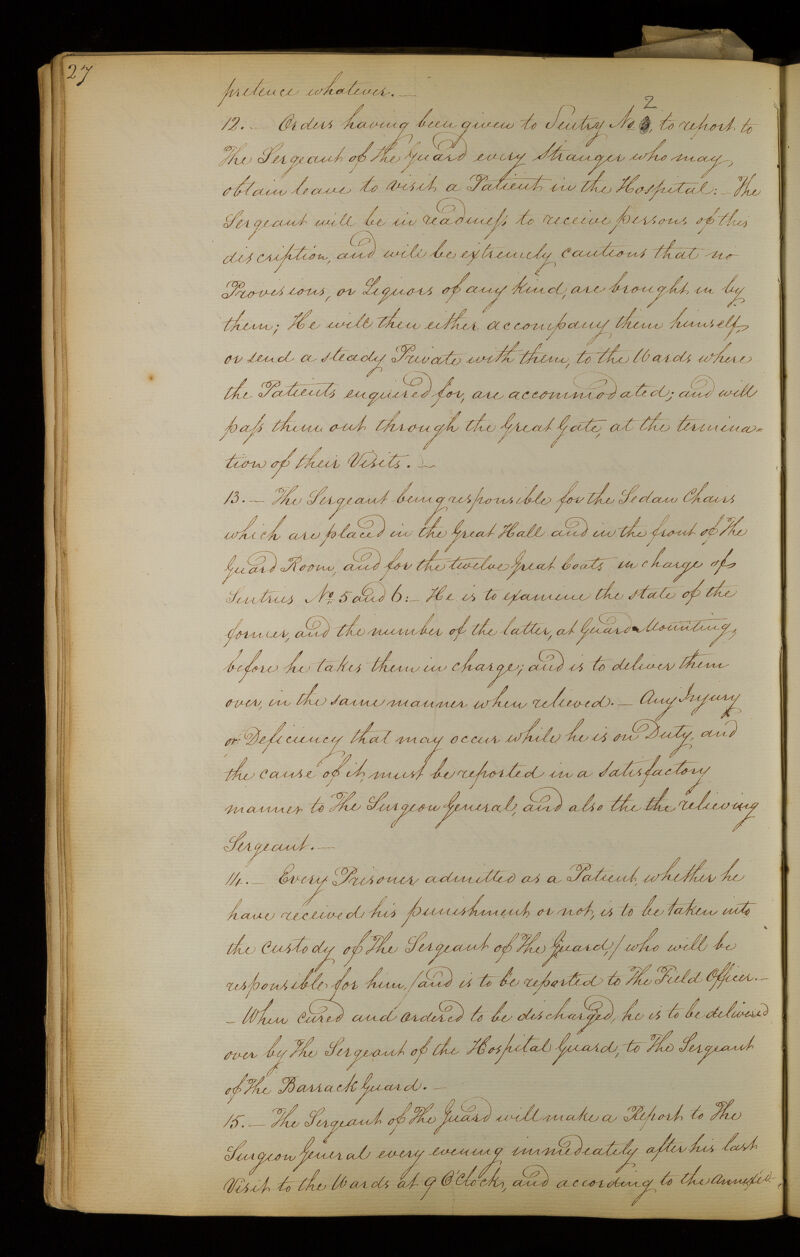 27
pretence whatever. —
12. — Orders having been given to Sentry No 2, to report to
The Sergeant of the Guard every Stranger who may
obtain leave to visit a Patient in the Hospital: — The
Sergeant will be in readiness to receive persons of this
discription, and will be extremely cautious that no
Provisions, or Liquors of any Kind, are brought in by
them; He will then either accompany them himself,
or send a steady Private with them, to the Wards where
the Patients enquired for, are accommodated; and will
pass them out through the Great Gate, at the termina=
tion of their Visits. —
13. — The Sergeant being responsible for the Sedan Chairs
which are placed in the Great Hall and in the front of The
Guard Room, and for the twelve Great Coats in charge of
Sentries No. 5 and 6: — He is to examine the state of the
former, and the number of the latter, at Guard Mounting,
before he takes them in charge; and is to deliver them
over, in the same manner when relieved. — Any Injury
or Deficiency that may occur while he is on Duty, and
the cause of it, must be reported in a satisfactory
manner to The Surgeon General, and also the the relieving
Sergeant. —
14. — Every Prisoner admitted as a Patient, whether he
have received his punishment or not, is to be taken into
the custody of The Sergeant of The Guard, / who will be
responsible for him, / and is to be reported to The Field Officer. —
— When cured and ordered to be discharged, he is to be delivered
over by The Sergeant of the Hospital Guard, to The Sergeant
of The Barrack Guard. —
15. — The Sergeant of The Guard will make a Report to The
Surgeon General every evening immediately after his last
Visit to the Wards at 9 O'Clock, and according to the annexed